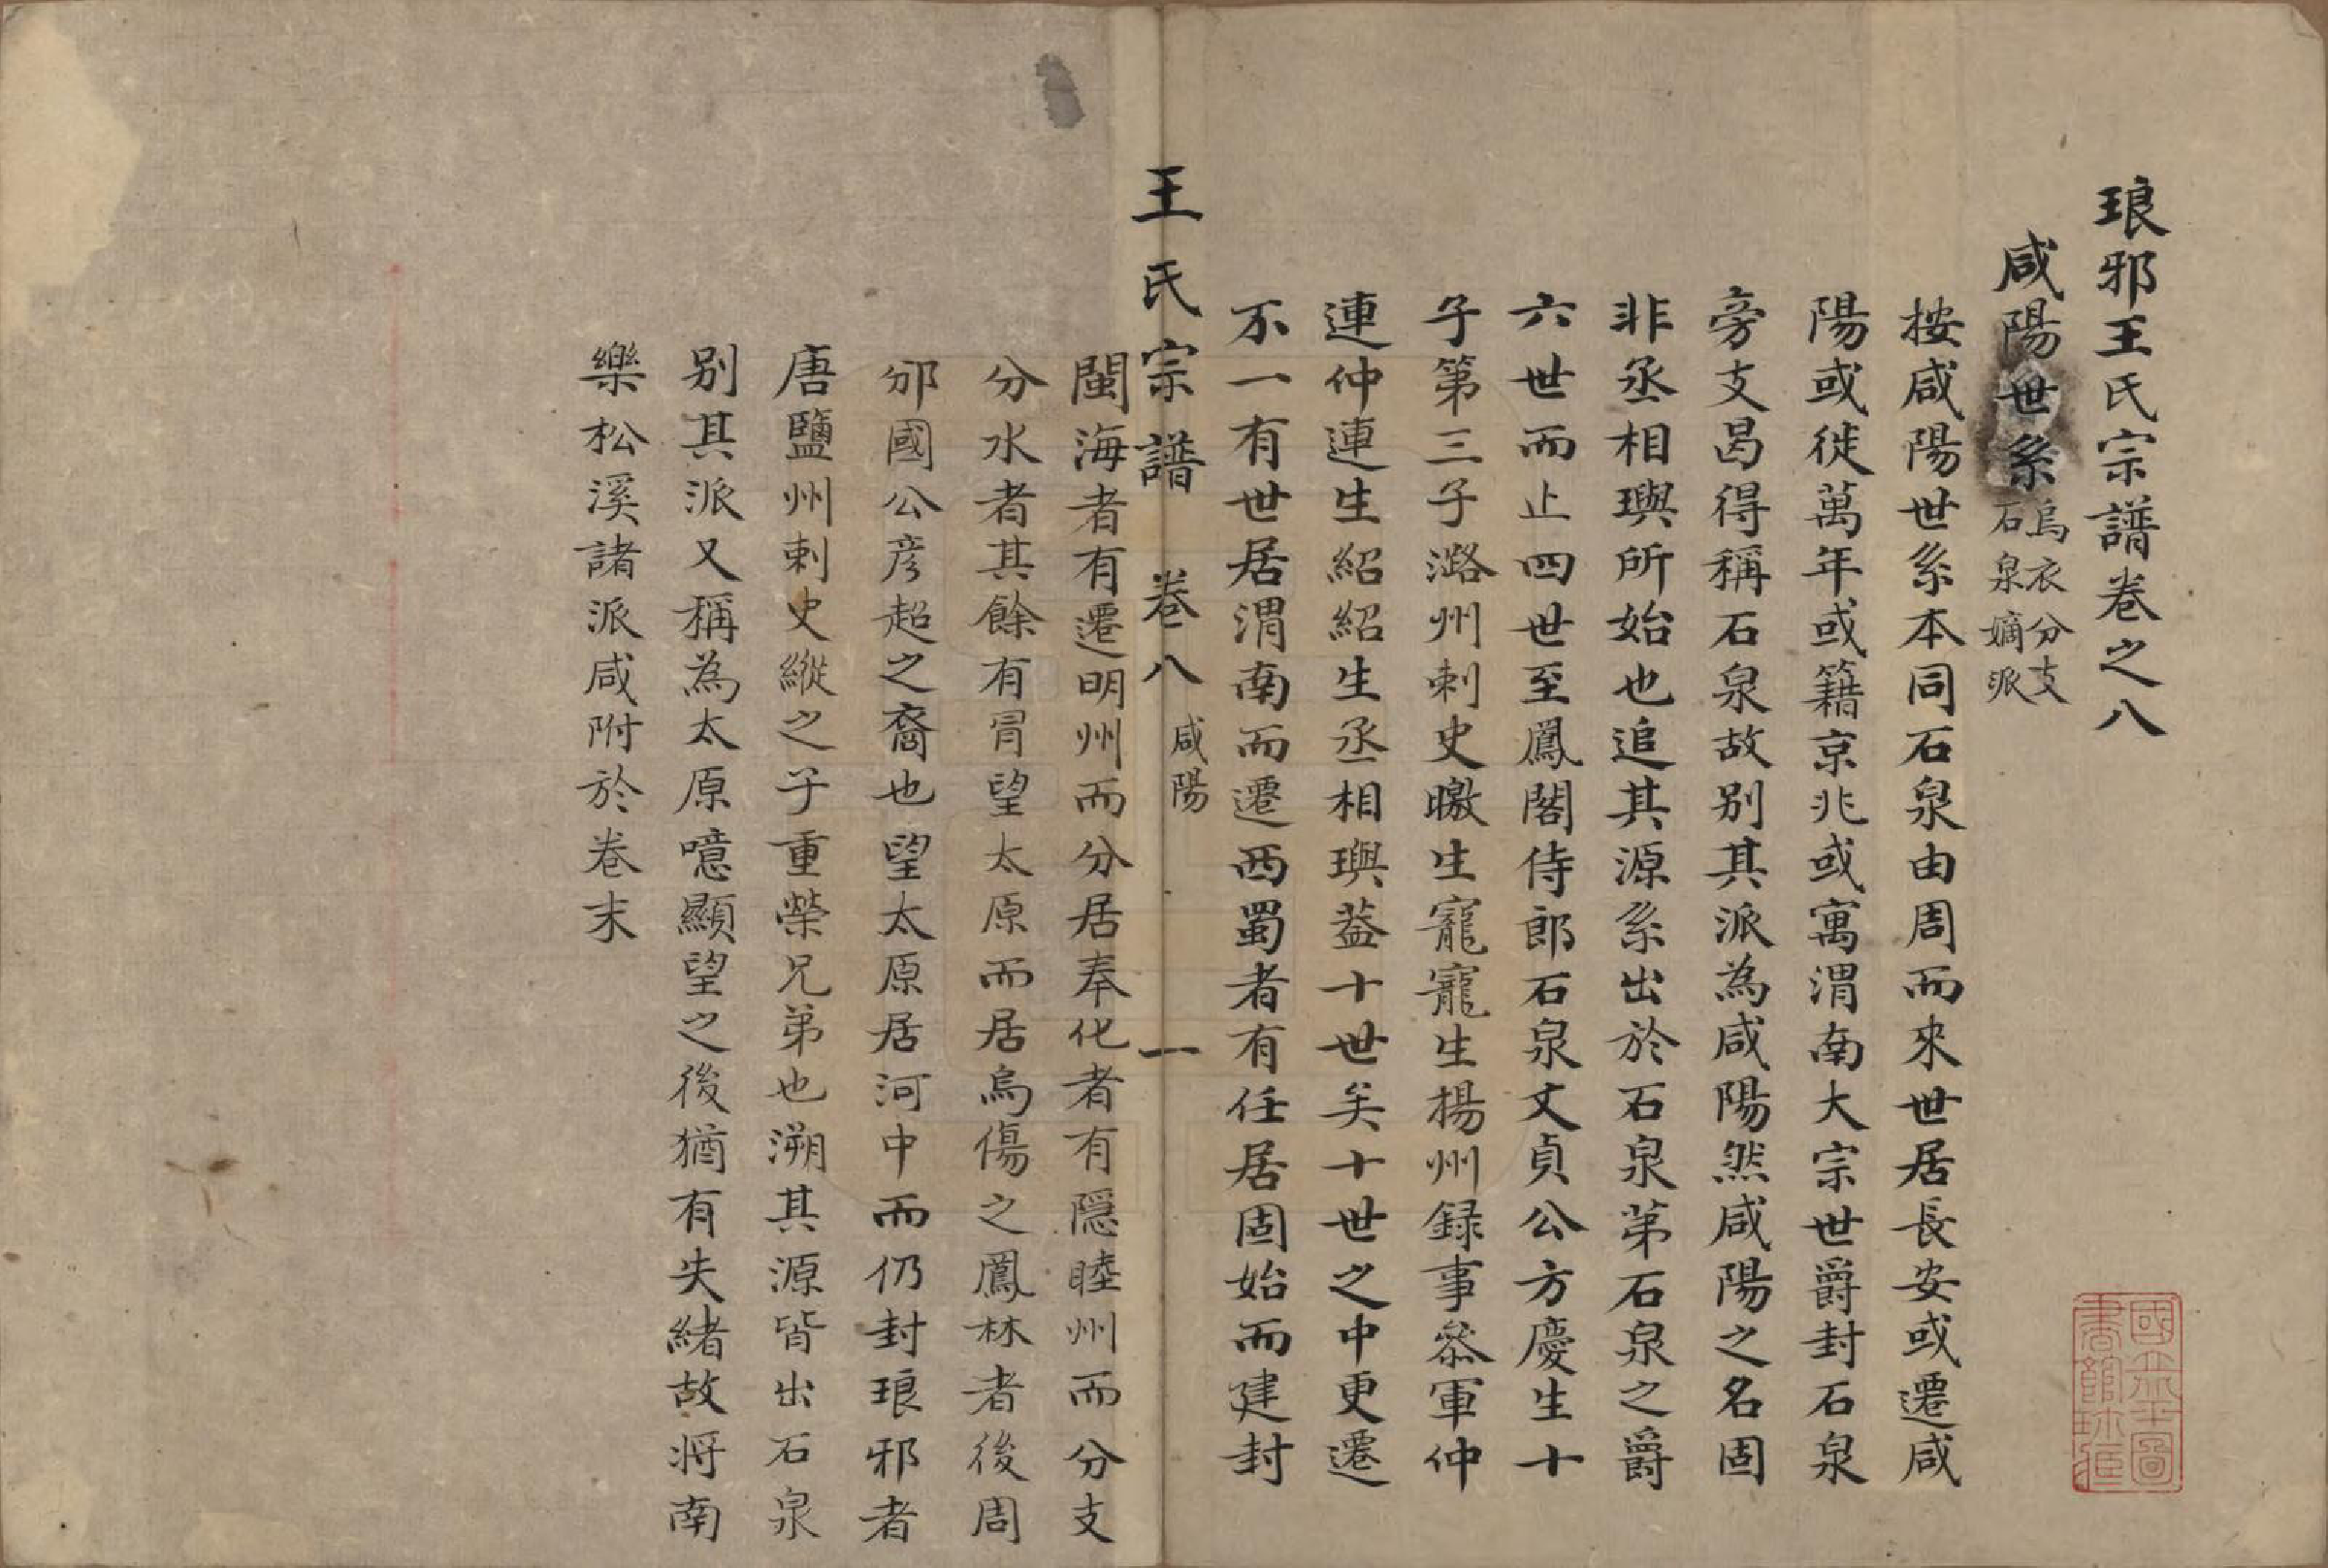 琅邪王氏宗譜卷之八
咸陽世系
烏衣分支
石泉嫡派
按咸陽世系本同石泉由周而來世居長安或遷咸
陽或徙萬年或籍京兆或寓渭南大宗世爵封石泉
旁支曷得稱石泉故别其派為咸陽然咸陽之名固
非丞相璵所始也追其源系出於石泉第石泉之爵
六世而止四世至鳳閣侍郎石泉文貞公方慶生十
子第三子潞州刺史曒生寵寵生楊州録事叅軍仲
連仲連生紹紹生丞相璵葢十世矣十世之中更遷
不一有世居渭南而遷西蜀者有任居固始而建封
王氏宗譜 卷八 咸陽 一
閩海者有遷明州而分居奉化者有隱睦州而分支
分水者其餘有冐望太原而居烏傷之鳳林者後周
邠國公彦超之裔也望太原居河中而仍封琅邪者
唐鹽州刺史縱之子重榮兄弟也溯其源皆出石泉
别其派又稱為太原噫顯望之後猶有失緒故将南
樂松溪諸派咸附於卷末
國立北平圖
書館珍藏